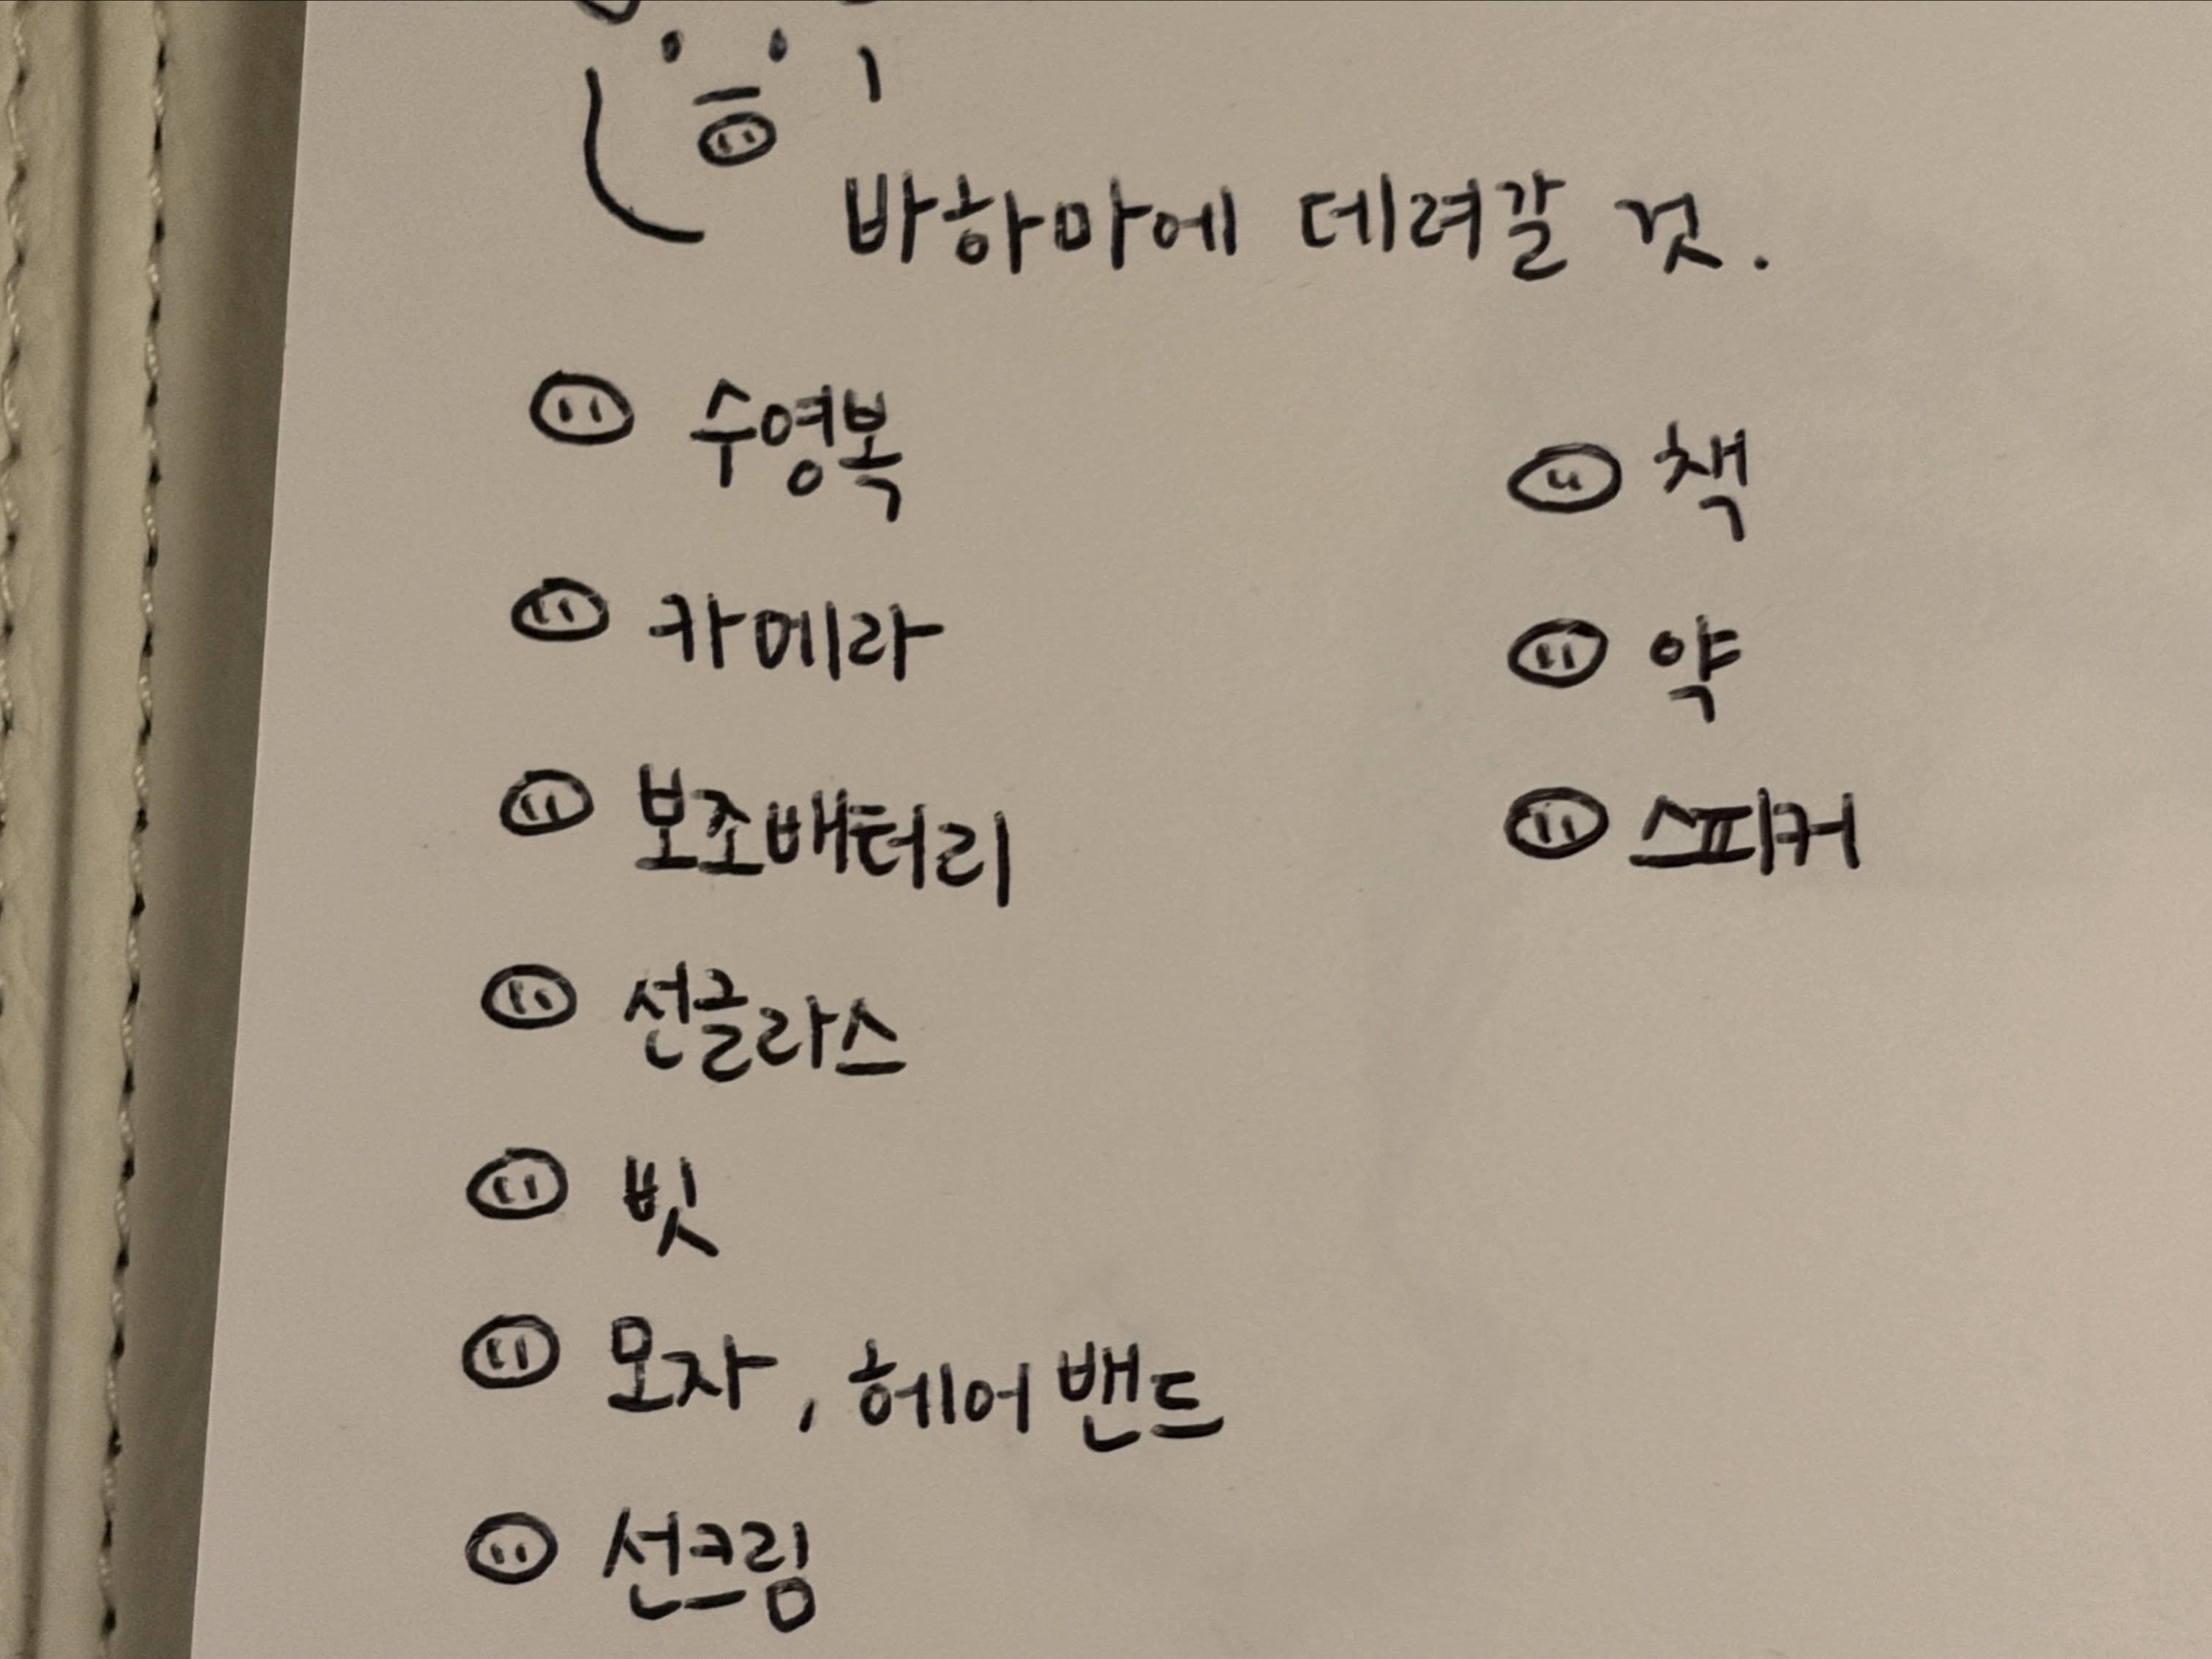 바하마에 데려갈 것.
수영복
카메라
보조배터리
선글라스
빗
모자, 헤어밴드
선크림
책
약
스피커